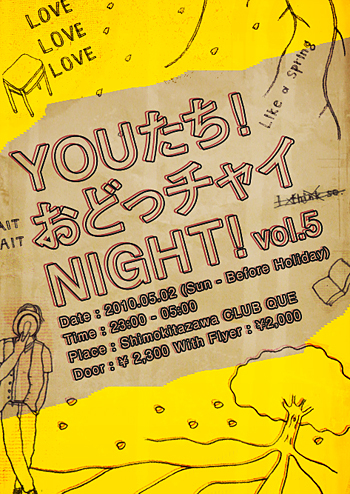 LOVE
LOVE
LOVE
Like a Spring
YOUたち!
おどっチャイ
I think so.
NIGHT! vol.5
AIT
AIT
Date : 2010.05.02 (Sun - Before Holiday)
Time : 23:00 - 05:00
Place : Shimokitazawa CLUB QUE
Door : ¥ 2,300 With Flyer : ¥2,000